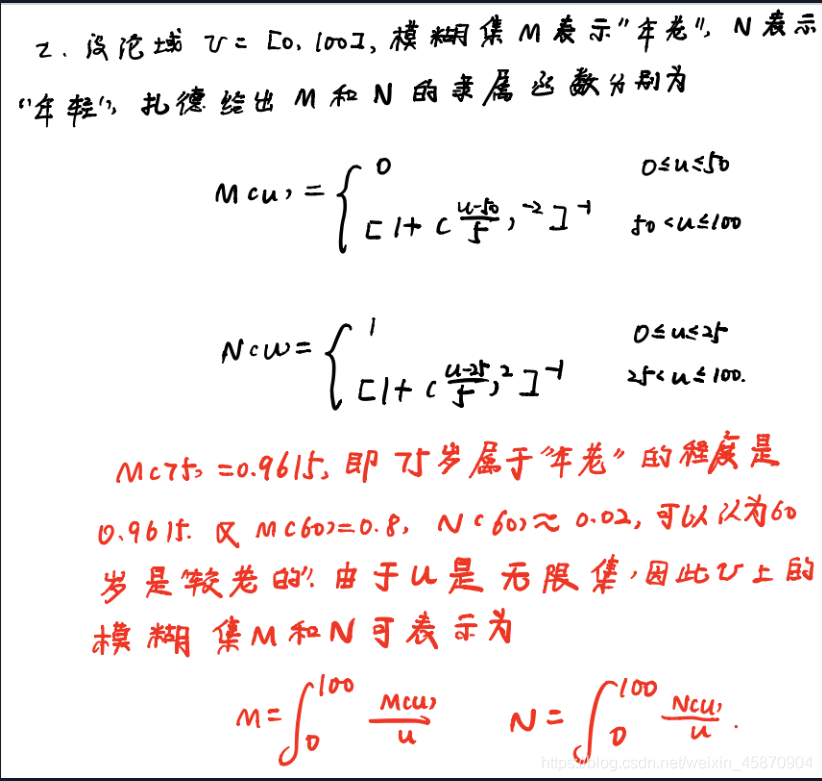 2. 设论域 U = [0, 100], 模糊集 M 表示"年老", N 表示
"年轻", 扎德给出 M 和 N 的隶属函数分别为
M(u) = { 0 0≤u≤50
[1+(\frac{u-50}{5})^{-2}]^{-1} 50<u≤100
N(u) = { 1 0≤u≤25
[1+(\frac{u-25}{5})^{2}]^{-1} 25<u≤100.
M(75) =0.9615, 即 75岁属于"年老" 的程度是
0.9615. 又 M(60)=0.8, N(60)≈0.02, 可以认为60
岁是"较老的". 由于U是无限集, 因此U上的
模糊集M和N可表示为
M=∫_0^{100} \frac{M(u)}{u} N=∫_0^{100} \frac{N(u)}{u}.
https://blog.csdn.net/weixin_45870904